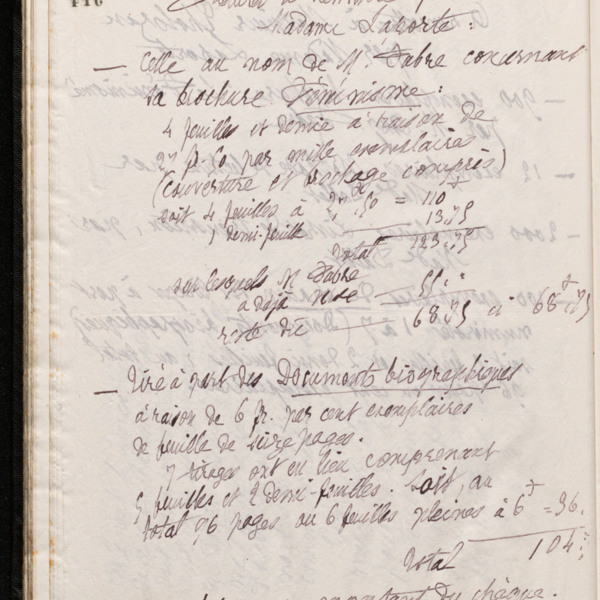 116
Madame Laporte :
— Celle au nom de M. Fabre concernant
sa brochure Féminisme :
4 feuilles et demie à raison de
27 fr. 50 par mille exemplaires
(couverture et brochage compris)
soit 4 feuilles à 27 50 = 110
1 demi-feuille 13.75
Total 123.75
sur lesquels M. Fabre
a déjà versé 55. "
reste dû 68.75 ci 68.75
— Tiré à part des Documents biographiques
à raison de 6 fr. par cent exemplaires
de feuille de seize pages.
7 tirages ont eu lieu comprenant
5 feuilles et 2 demi-feuilles. Soit, au
total 96 pages ou 6 feuilles pleines à 6 = 36.
Total 104
du chèque.